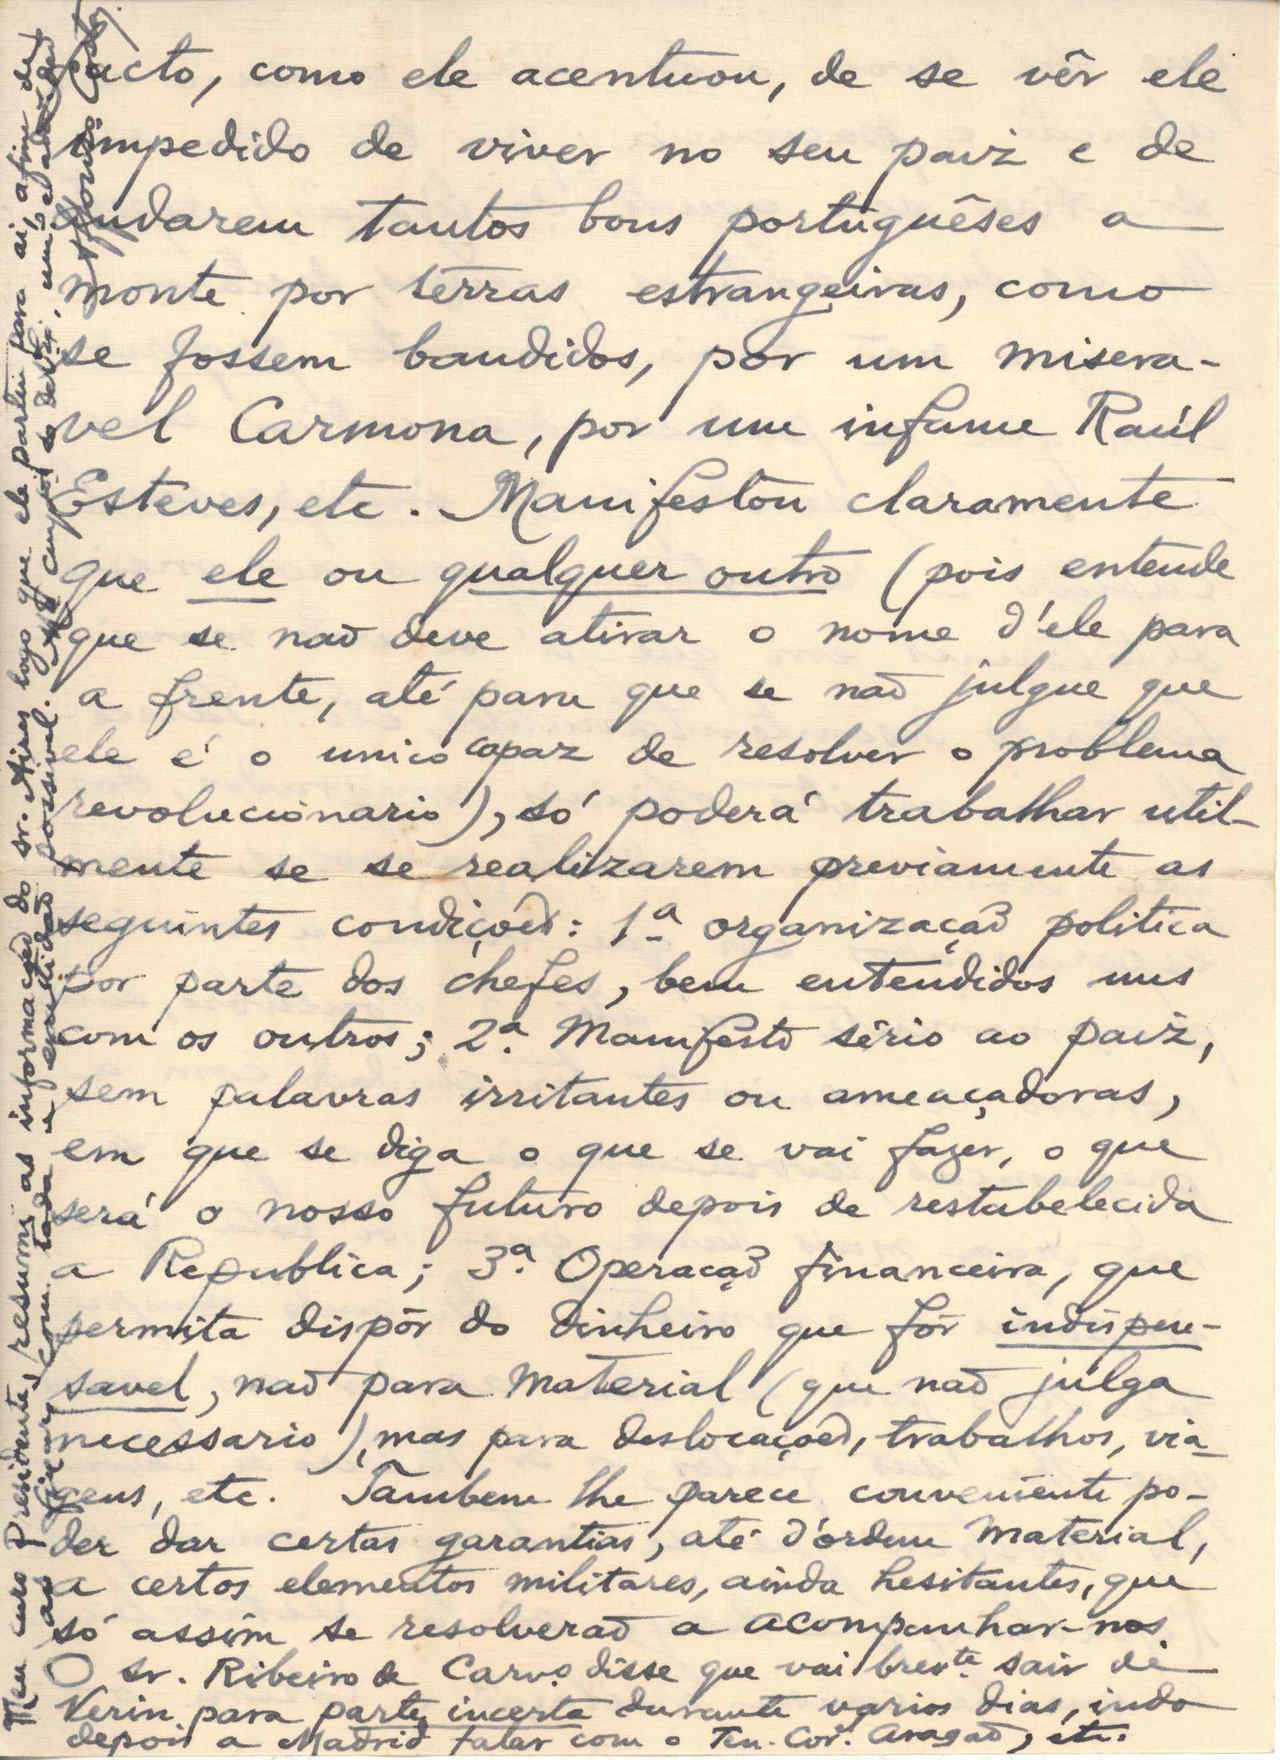 facto, como ele acentuou, de se vêr ele
impedido de viver no seu paiz e de
andarem tantos bons portuguêses a
monte por terras estrangeiras, como
se fossem bandidos, por um misera-
vel Carmona, por um infame Raúl
Esteves, etc. Manifestou claramente
que ele ou qualquer outro (pois entende
que se não deve atirar o nome d'ele para
a frente, até para que se não julgue que
ele é o unico capaz de resolver o problema
revolucionario), só poderá trabalhar util-
mente se se realizarem previamente as
seguintes condições: 1.ª organização politica
por parte dos chefes, bem entendidos uns
com os outros; 2.ª Manifesto sério ao paiz,
sem palavras irritantes ou ameaçadoras,
em que se diga o que se vai fazer, o que
será o nosso futuro depois de restabelecida
a Republica; 3.ª Operação financeira, que
permita dispôr do dinheiro que fôr indispen-
savel, não para material (que não julga
necessario), mas para deslocações, trabalhos, via-
gens, etc. Tambem lhe parece conveniente po-
der dar certas garantias, até d'ordem material,
a certos elementos militares, ainda hesitantes, que
só assim se resolverão a acompanhar-nos.
O sr. Ribeiro de Carv.º disse que vai brev.te sair de
Verin para parte incerta durante varios dias, indo
depois a Madrid falar com o Ten. Cor. Aragão, etc.
Meu caro Presidente, resumi as informações do sr. Aires logo que ele partiu para aí, afim de
as fixar, com toda a exactidão possivel.
Afonso Costa